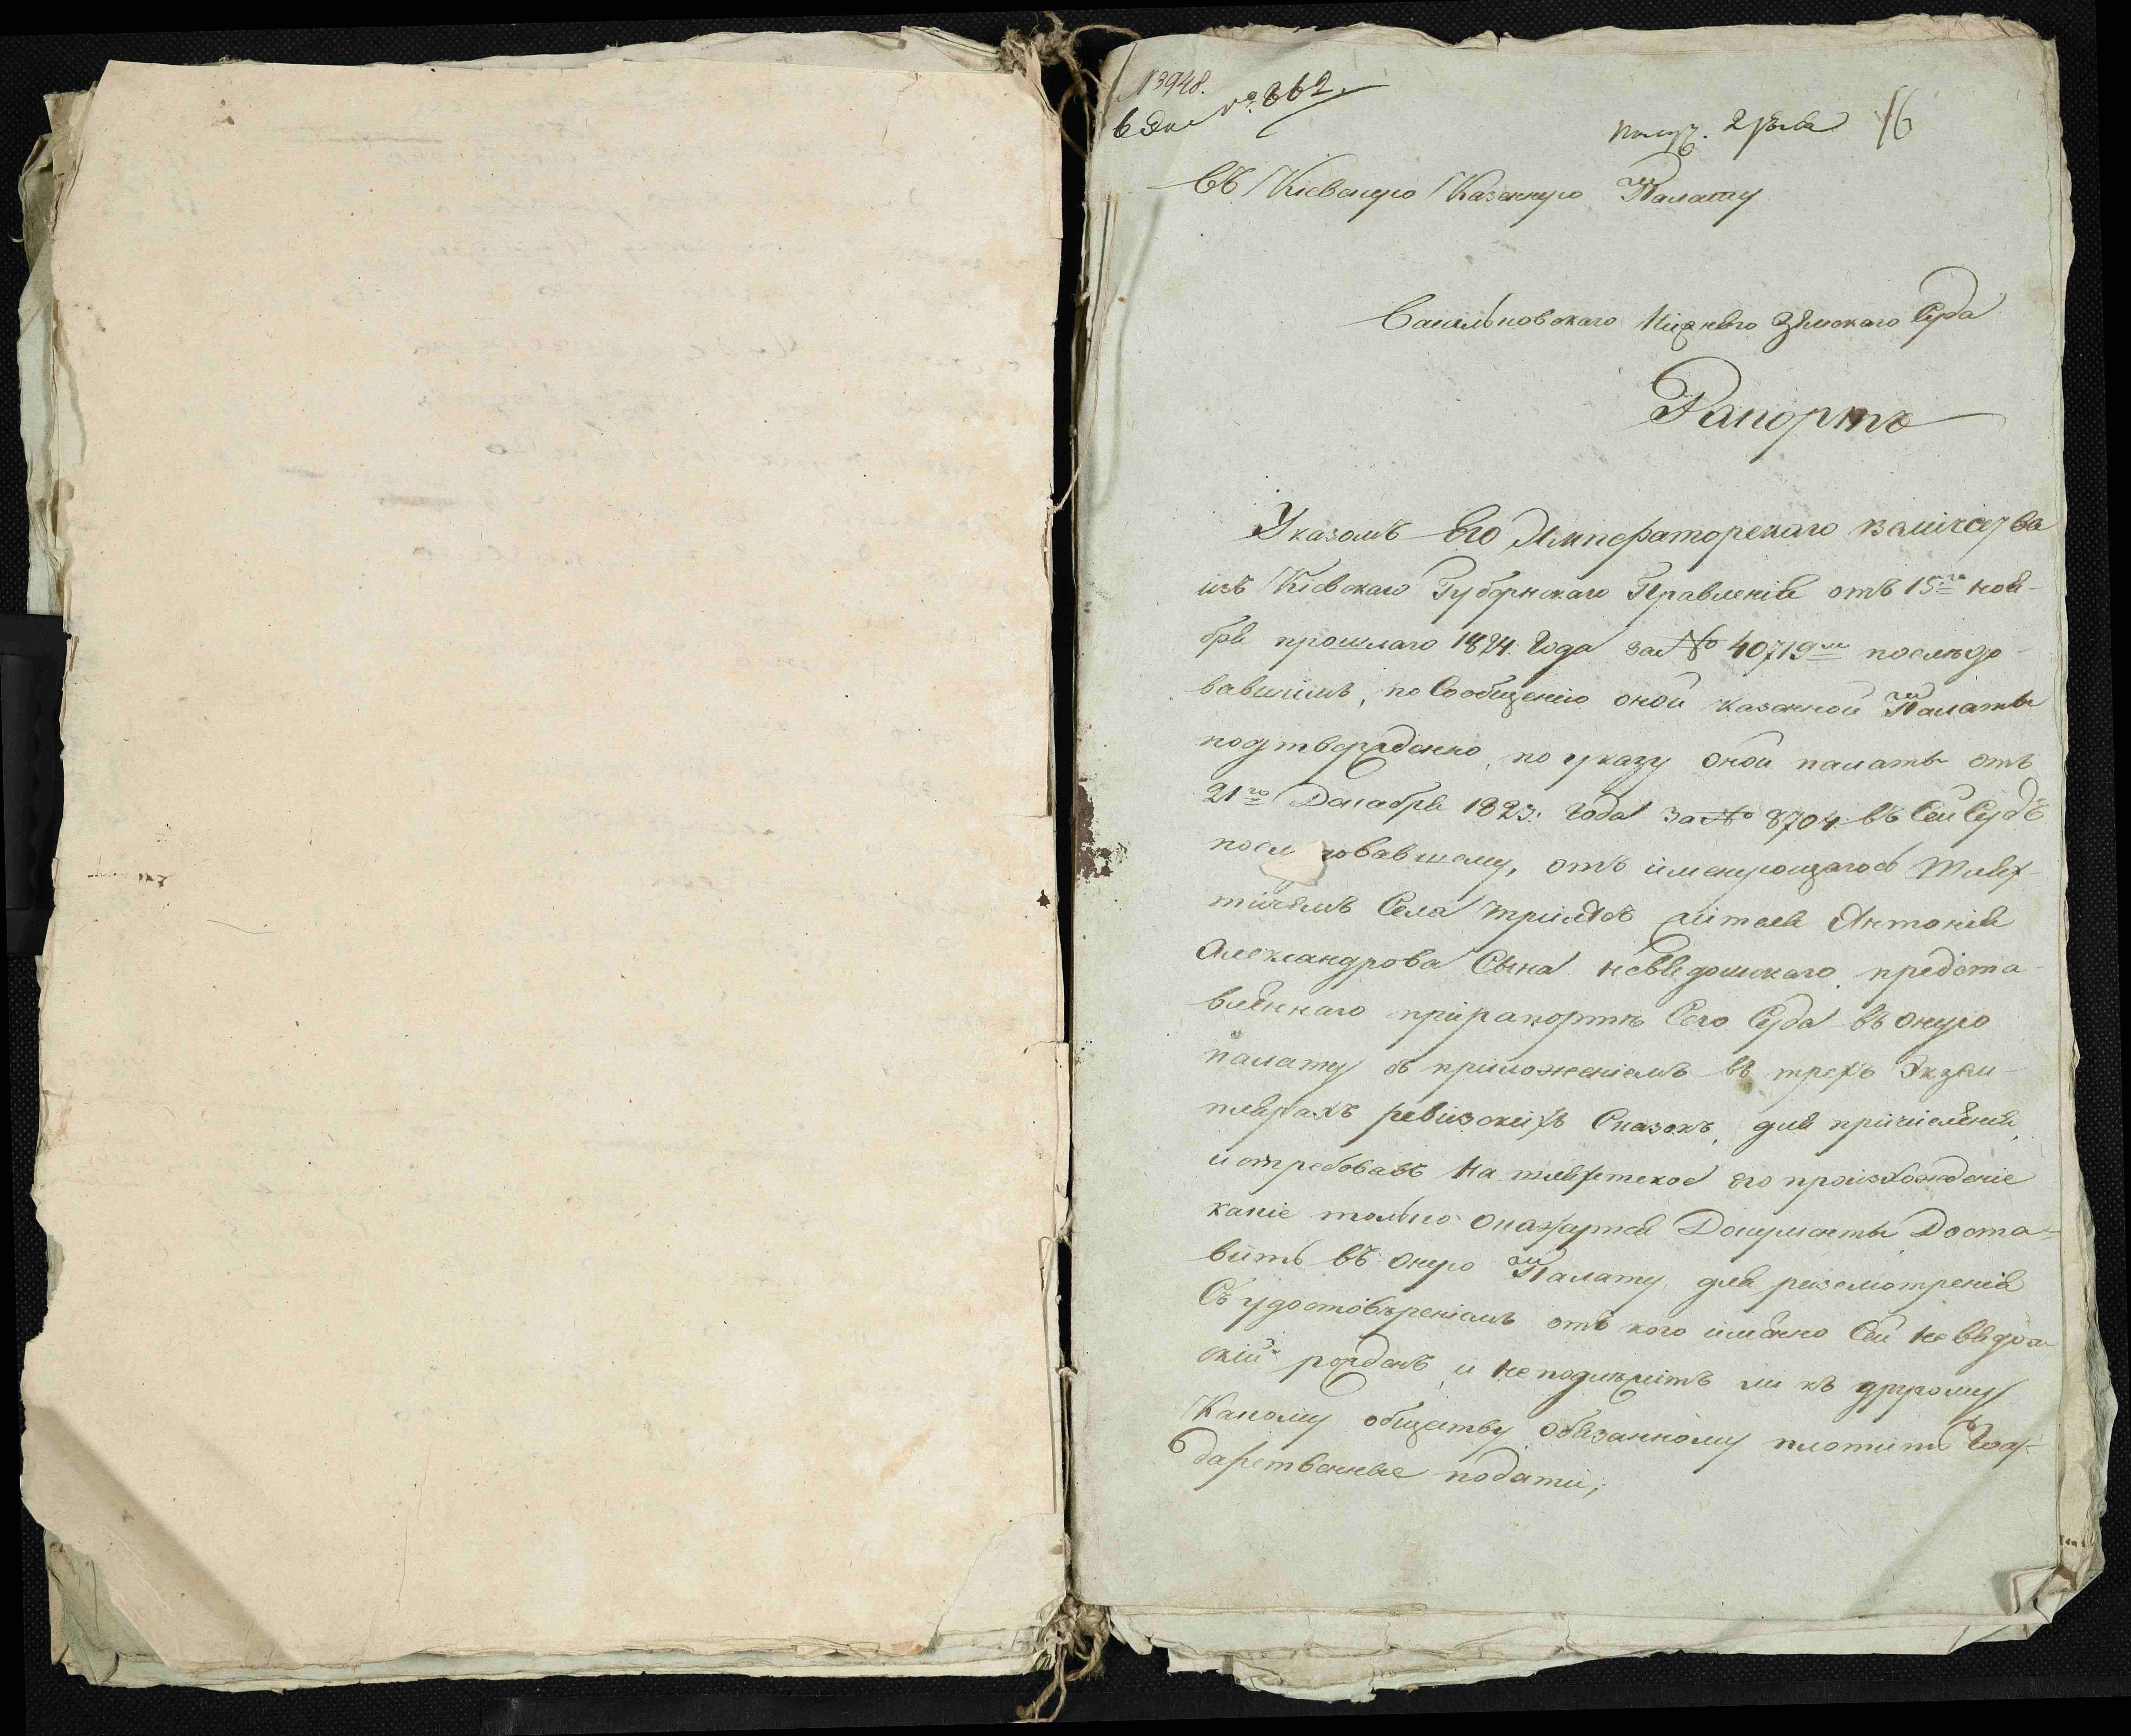 № 3948.
№ 862.
16
Въ Кіевскую Казенную Палату
Васильковскаго Нижняго Земскаго Суда
Рапортъ
Указомъ Его Императорскаго величества
изъ Кіевскаго Губернскаго Правленія отъ 15го ноя-
бря прошлаго 1824 Года за № 40719м последо-
вавшимъ, по Сообщенію оной казенной Палаты
подтверждено, по указу оной палаты отъ
21го Декабря 1823. Года За № 8704. въ Сей Судъ
посл довавшему, отъ именующагося Шлях-
тичемъ Села жителя Антонія
Александрова Сына невядомскаго, предста-
вленнаго прирапортѣ Сего Суда въ оную
палату съ приложеніемъ въ трехъ Экзем-
плярахъ ревизскихъ Сказокъ, для причисленія,
истребовавъ на шляхетское его произхожденіе
каніе только окажутся Документы Доста-
вить въ оную Палату, для разсмотренія
Съ удостовѣреніемъ отъ кого имянно Сей невядом
скій рожденъ, и неподлежитъ ли къ другому
Какому обществу Обязанному плотить Госу-
дарственные подати;